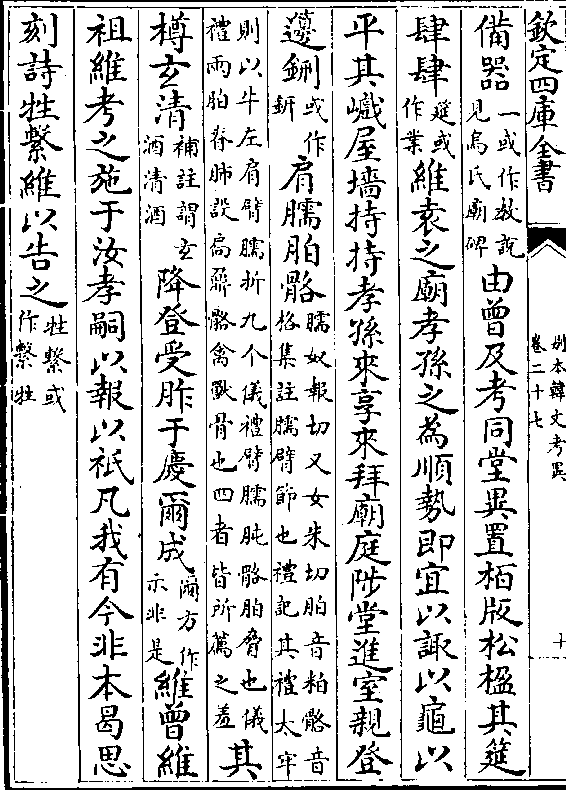 欽定四庫全書
別本韓文考異
卷二十七
十
備器一或作敖說見烏氏廟碑由曾及考同堂異置柏版松楹其筵
肆肆筵或作業維袁之廟孝孫之為順勢即宜以諏以龜以
平其巇屋墻持持孝孫來享來拜廟庭陟堂進室親登
籩鉶或作鈃肩臑胉骼臑奴報切又女朱切胉音粕骼音格集註臑臂節也禮記其禮太牢
則以牛左肩臂臑折九个儀禮臂臑肫骼胉脅也儀禮兩胉脊肺設扃鼏骼禽獸骨也四者皆所薦之羞其
樽玄清補註謂玄酒清酒降登受胙于慶爾成爾方作示非是維曾維
祖維考之施于汝孝嗣以報以祇凡我有今非本曷思
刻詩牲繫維以告之牲繫或作繫牲